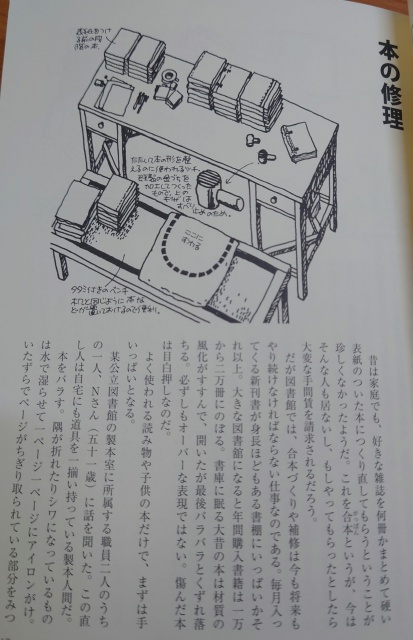 本の修理
表紙をつけ
る前の段
階の本。
たたいて本の形を整
えるのに使われるツチ。
ここに
すわる
タタミ付きのベンチ
昔は家庭でも、好きな雑誌を何冊かまとめて硬い
表紙のついた本につくり直してもらうということが
珍しくなかったようだ。これを合本というが、今は
そんな人も居ないし、もしやってもらったとしたら
大変な手間賃を請求されるだろう。
だが図書館では、合本づくりや補修は今も将来も
やり続けなければならない仕事なのである。毎月入っ
てくる新刊書が身長ほどもある書棚にいっぱいかそ
れ以上。大きな図書館になると年間購入書籍は一万
から二万冊にのぼる。書庫に眠る大昔の本は材質の
風化がすすんで、開いたが最後バラバラとくずれ落
ちる。必ずしもオーバーな表現ではない。傷んだ本
は目白押しなのだ。
よく使われる読み物や子供の本だけで、まずは手
いっぱいとなる。
某公立図書館の製本室に所属する職員二人のうち
の一人、Nさん（五十一歳）に話を聞いた。この直
し人は自宅にも道具を一揃い持っている製本人間だ。
本をバラす。隅が折れたりシワになっているもの
は水で湿らせて一ページ一ページにアイロンがけ。
いたずらでページがちぎり取られている部分をみつ